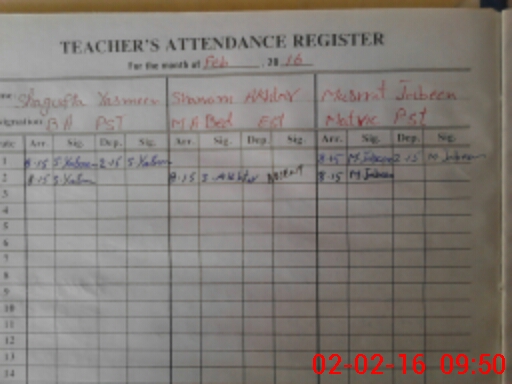 TEACHER'S ATTENDANCE REGISTER
For the month of Feb 2016
Shagufta Yasmeen Shanam Akhtar Musrrat Jabeen
BA PST MA Bed EST Matric PST
Arr. Sig. Dep. Sig. Arr. Sig. Dep. Sig. Arr. Sig. Dep. Sig.
1 8.15 S.Yasmeen 2.15 S.Yasmeen 8.15 M.Jabeen 2.15 M.Jabeen
2 8.15 S.Yasmeen 8.15 S.Akhtar 8.15 M.Jabeen
3
4
5
6
7
8
9
10
11
12
13
14
02-02-16 09:50